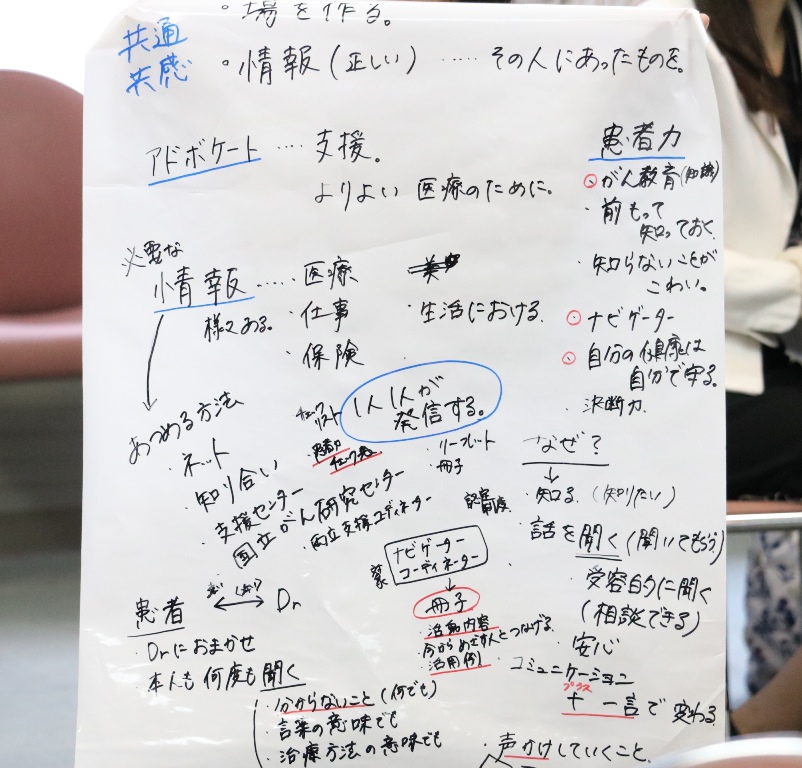 ・場を作る。
共通
共感
・情報(正しい)……その人にあったものを。
アドボケート…支援。
よりよい医療のために。
必要な
情報……・医療
様々ある。
・仕事
・保険
・生活における
あつめる方法
・ネット
・知り合い
・支援センター
・国立がん研究センター
・両立支援コーディネーター
チェック
リスト
1人1人が
発信する。
患者力
チェック表
・リーフレット
・冊子
患者力
・がん教育(知識)
・前もって
知っておく
・知らないことが
こわい。
・ナビゲーター
・自分の健康は
自分で守る。
・決断力
なぜ?
・知る(知りたい)
・話を聞く(聞いてもらう)
・受容的に聞く
(相談できる)
・安心
・コミュニケーション
プラス
+一言で変わる
・声かけしていくこと。
認定
制度
ナビゲーター
コーディネーター
冊子
・活動内容
・今からめざす人とつなげる
・活用例
患者
Dr
・Drにおまかせ
・本人も何度も聞く
・分からないこと(何でも)
・言葉の意味でも
・治療方法の意味でも